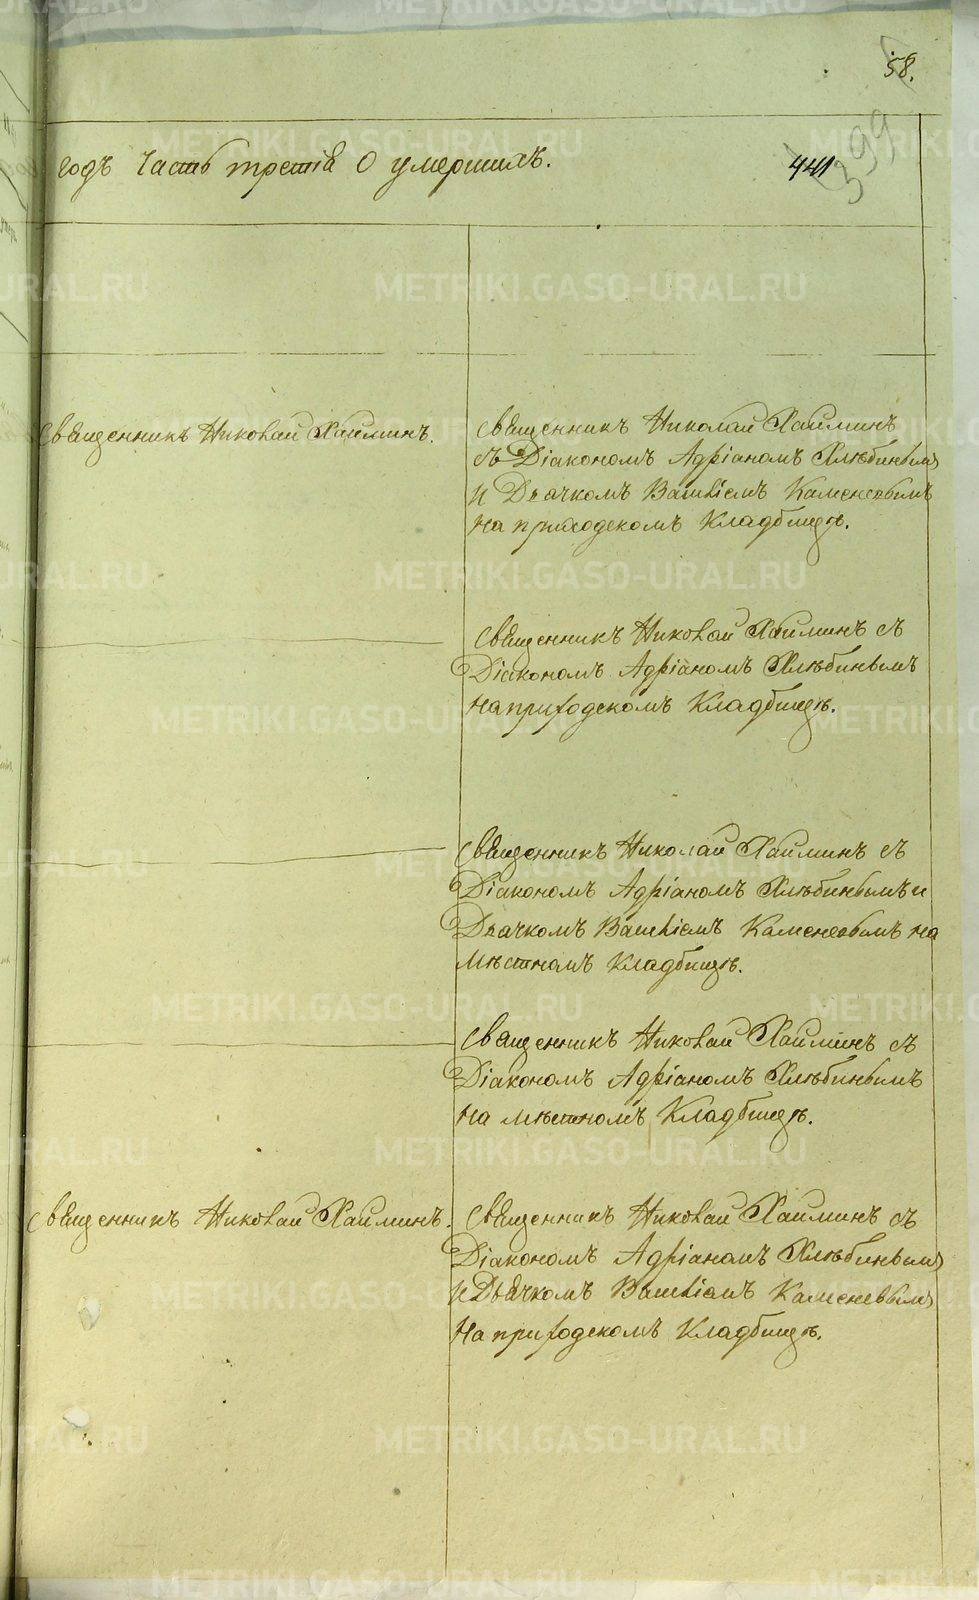 58.
годъ Часть третія О умершихъ.
441
399
Священникъ Николай Хаиминъ.
Священникъ Николай Хаиминъ
съ Діакономъ Адріаномъ Хлѣбинымъ
и Дьячкомъ Каменевымъ
на приходскомъ Кладбищѣ.
Священникъ Николай Хаиминъ съ
Діакономъ Адріаномъ Хлѣбинымъ
на приходскомъ Кладбищѣ.
Священникъ Николай Хаиминъ съ
Діакономъ Адріаномъ Хлѣбинымъ и
Дьячкомъ Каменевымъ на
мѣстномъ Кладбищѣ.
Священникъ Николай Хаиминъ съ
Діакономъ Адріаномъ Хлѣбинымъ
на мѣстномъ Кладбищѣ.
Священникъ Николай Хаиминъ.
Священникъ Николай Хаиминъ съ
Діакономъ Адріаномъ Хлѣбинымъ
и Дьячкомъ Каменевымъ
на приходскомъ Кладбищѣ.
METRIKI.GASO-URAL.RU